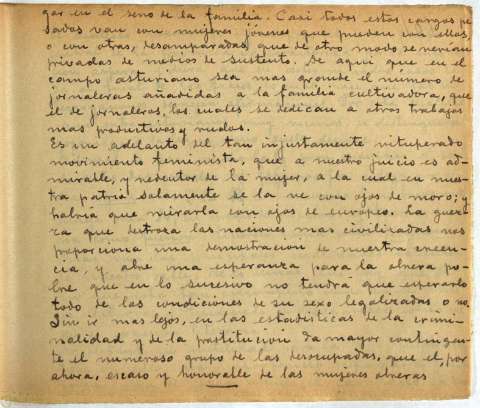 gar en el seno de la familia. Casi todos estos cargos pe
sados van con mujeres jóvenes que pueden con ellos,
o con otras, desamparadas, que de otro modo se verían
privadas de medios de sustento. De aquí que en el
campo asturiano sea mas grande el numero de
jornaleras añadidas a la familia cultivadora, que
el de jornaleros, los cuales se dedican a otros trabajos
mas productivos y rudos.
Es un adelanto del tan injustamente vituperado
movimiento feminista, que a nuestro juicio es ad-
mirable, y redentor de la mujer, a la cual en nues-
tra patria solamente se la ve con ojos de moro; y
habria que mirarla con ojos de europeo. La guer
ra que destroza las naciones mas civilizadas nos
proporciona una demostracion de nuestra creen-
cia, y abre una esperanza para la obrera po-
bre que en lo sucesivo no tendra que esperarlo
todo de las condiciones de su sexo legalizadas o no.
Sin ir mas lejos, en las estadisticas de la crimi-
nalidad y de la prostitucion da mayor contingen-
te el numeroso grupo de las desocupadas, que el, por
ahora, escaso y honorable de las mujeres obreras